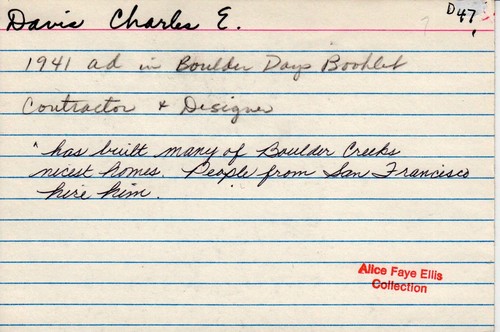 Davis Charles E.
D47
1941 ad in Boulder Days Booklet
Contractor & Designer
"has built many of Boulder Creeks
nicest homes. People from San Francisco
hire him.
Alice Faye Ellis
Collection